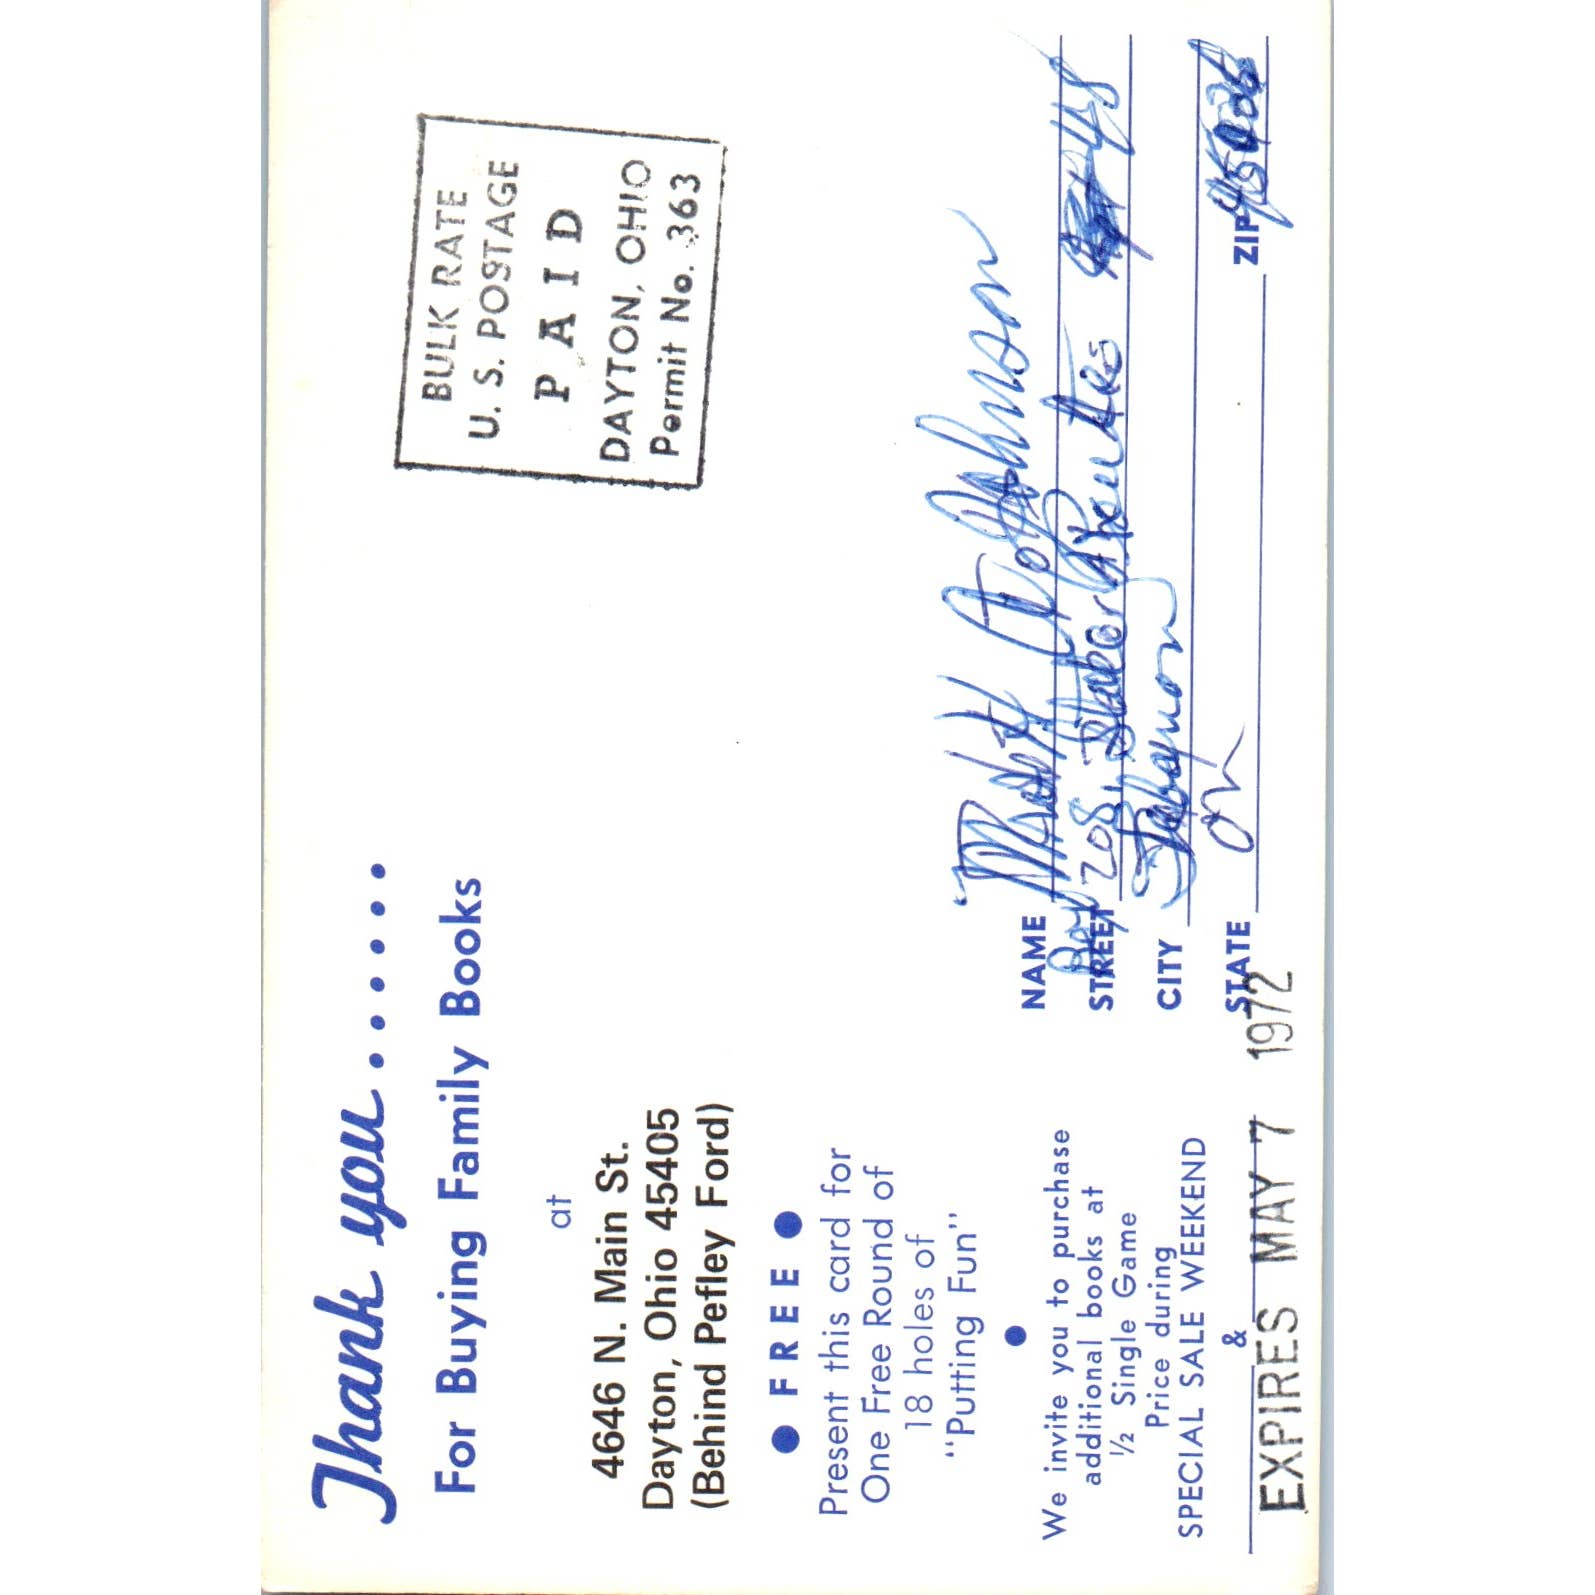 Thank you......
For Buying Family Books
at
4646 N. Main St.
Dayton, Ohio 45405
(Behind Pefley Ford)
● FREE ●
Present this card for
One Free Round of
18 holes of
"Putting Fun"
●
We invite you to purchase
additional books at
½ Single Game
Price during
SPECIAL SALE WEEKEND
&
EXPIRES MAY 7 1972
BULK RATE
U. S. POSTAGE
PAID
DAYTON, OHIO
Permit No. 363
NAME Johnson
STREET
CITY
STATE
ZIP